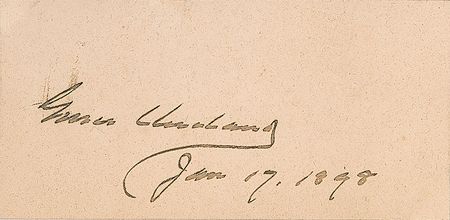 Grover Cleveland
Jan 17, 1898